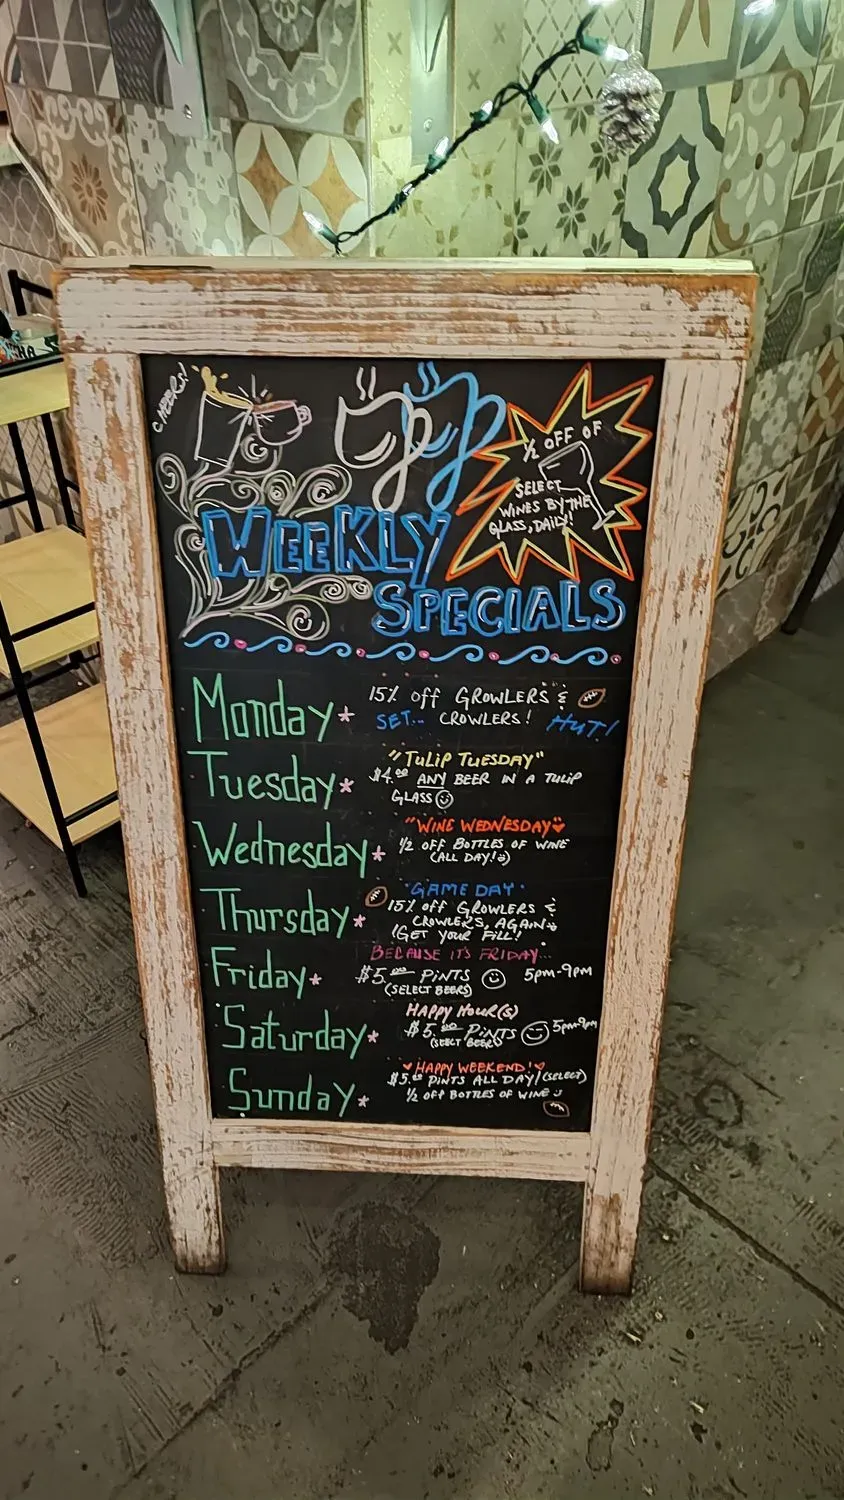 CHEERS!
1/2 OFF OF
SELECT
WINES BY THE
GLASS, DAILY!
WEEKLY
SPECIALS
Monday* 15% off GROWLERS &
SET... CROWLERS! HUT!
Tuesday* "TULIP TUESDAY"
$4.00 ANY BEER IN A TULIP
GLASS
Wednesday* "WINE WEDNESDAY
1/2 OFF BOTTLES OF WINE
(ALL DAY!)
Thursday* "GAME DAY"
15% off GROWLERS &
CROWLERS, AGAIN
!GET YOUR FILL!
Friday* BECAUSE IT'S FRIDAY...
$5.00 PINTS 5pm-9pm
(SELECT BEERS)
Saturday* HAPPY HOUR(S)
$5.00 PINTS 5pm-9pm
(SELECT BEERS)
Sunday* HAPPY WEEKEND!
$5.00 PINTS ALL DAY! (SELECT)
1/2 OFF BOTTLES OF WINE